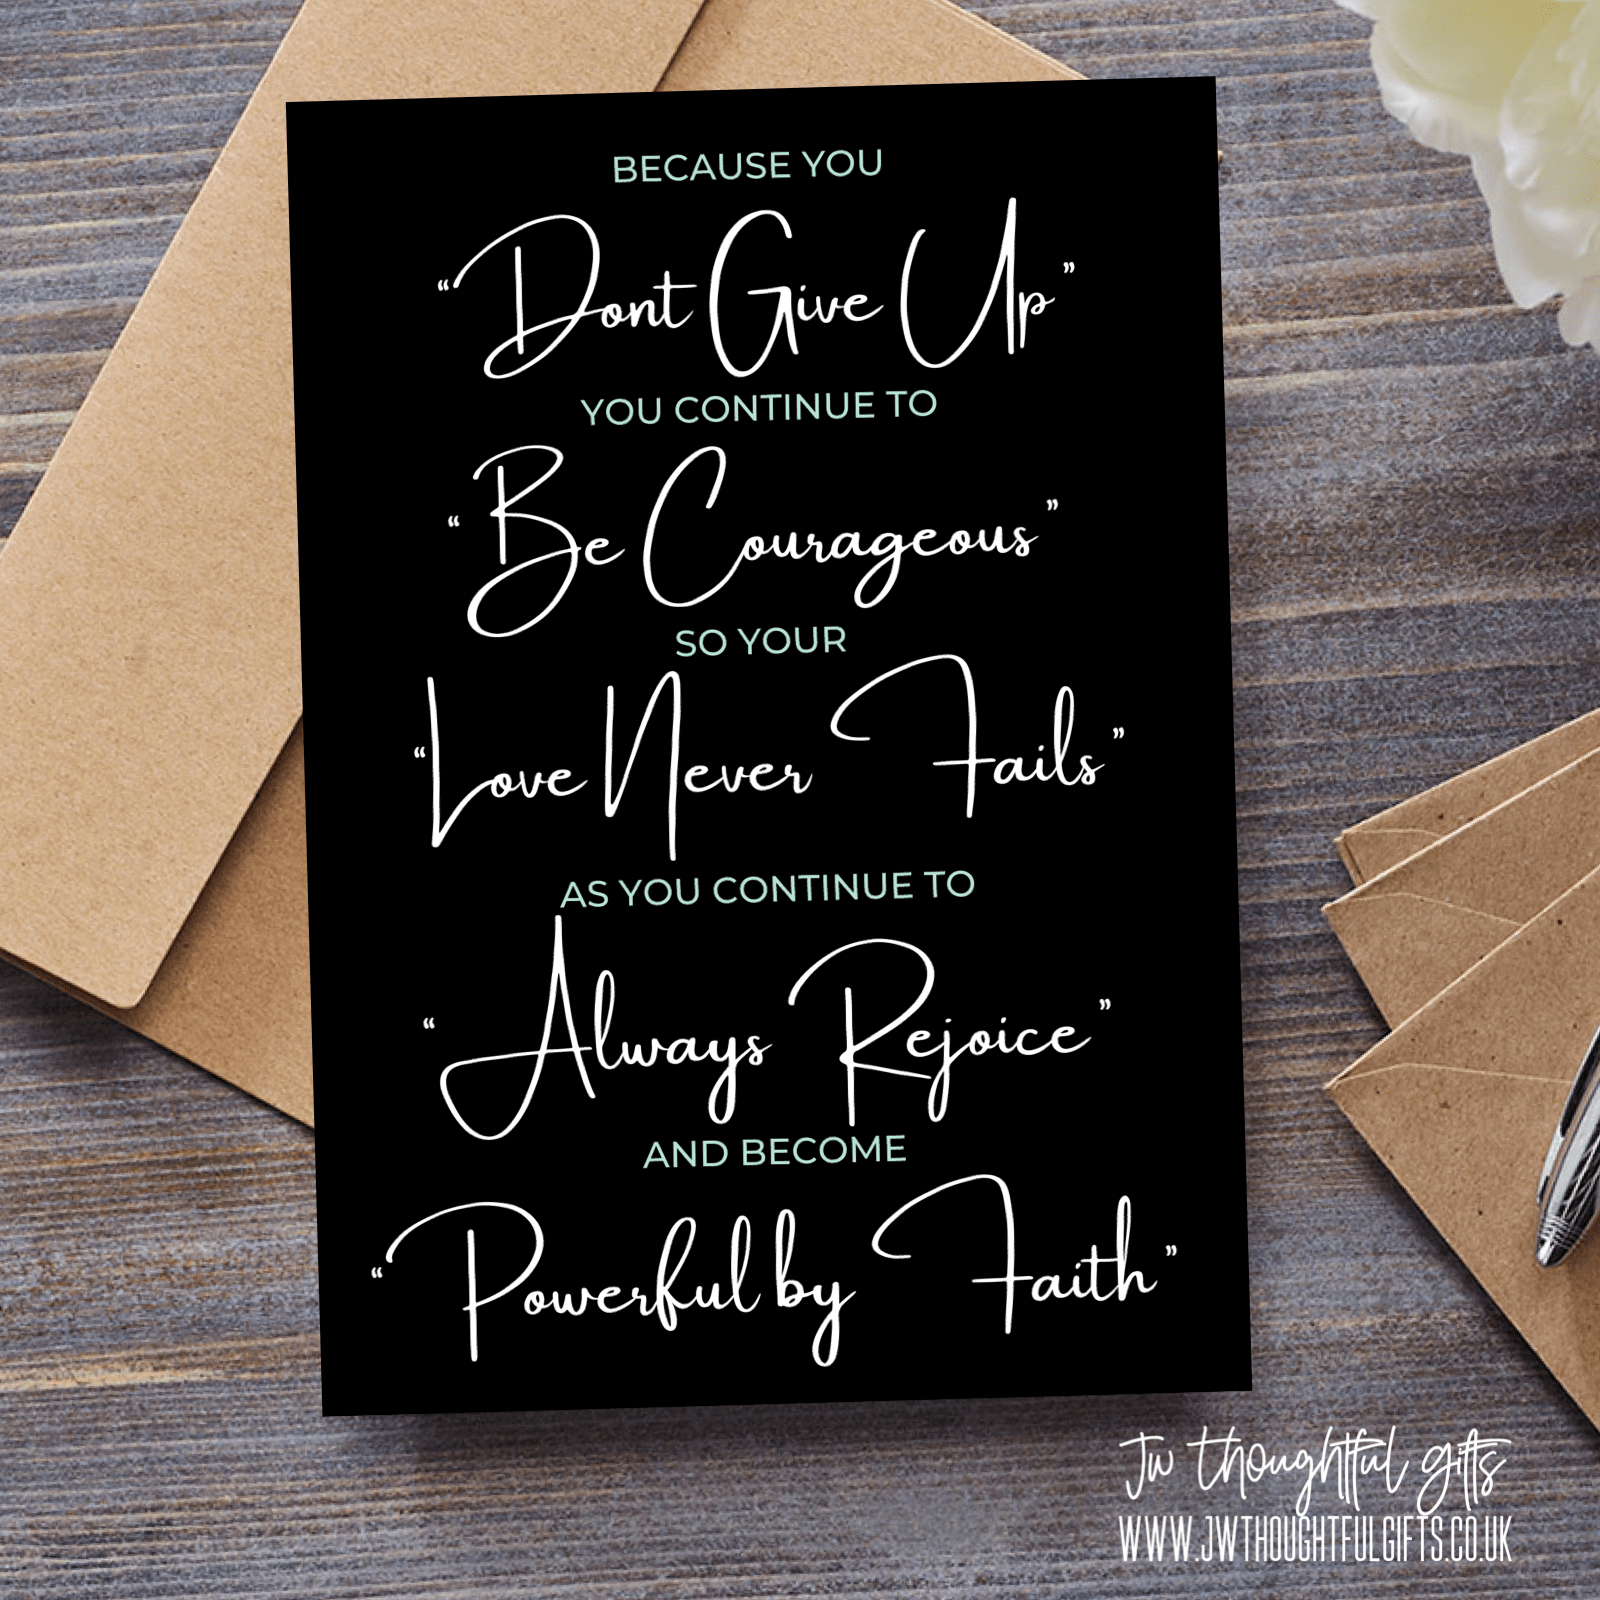 BECAUSE YOU
“Dont Give Up”
YOU CONTINUE TO
“Be Courageous”
SO YOUR
“Love Never Fails”
AS YOU CONTINUE TO
“Always Rejoice”
AND BECOME
“Powerful by Faith”
Jw thoughtful gifts
WWW.JWTHOUGHTFULGIFTS.CO.UK